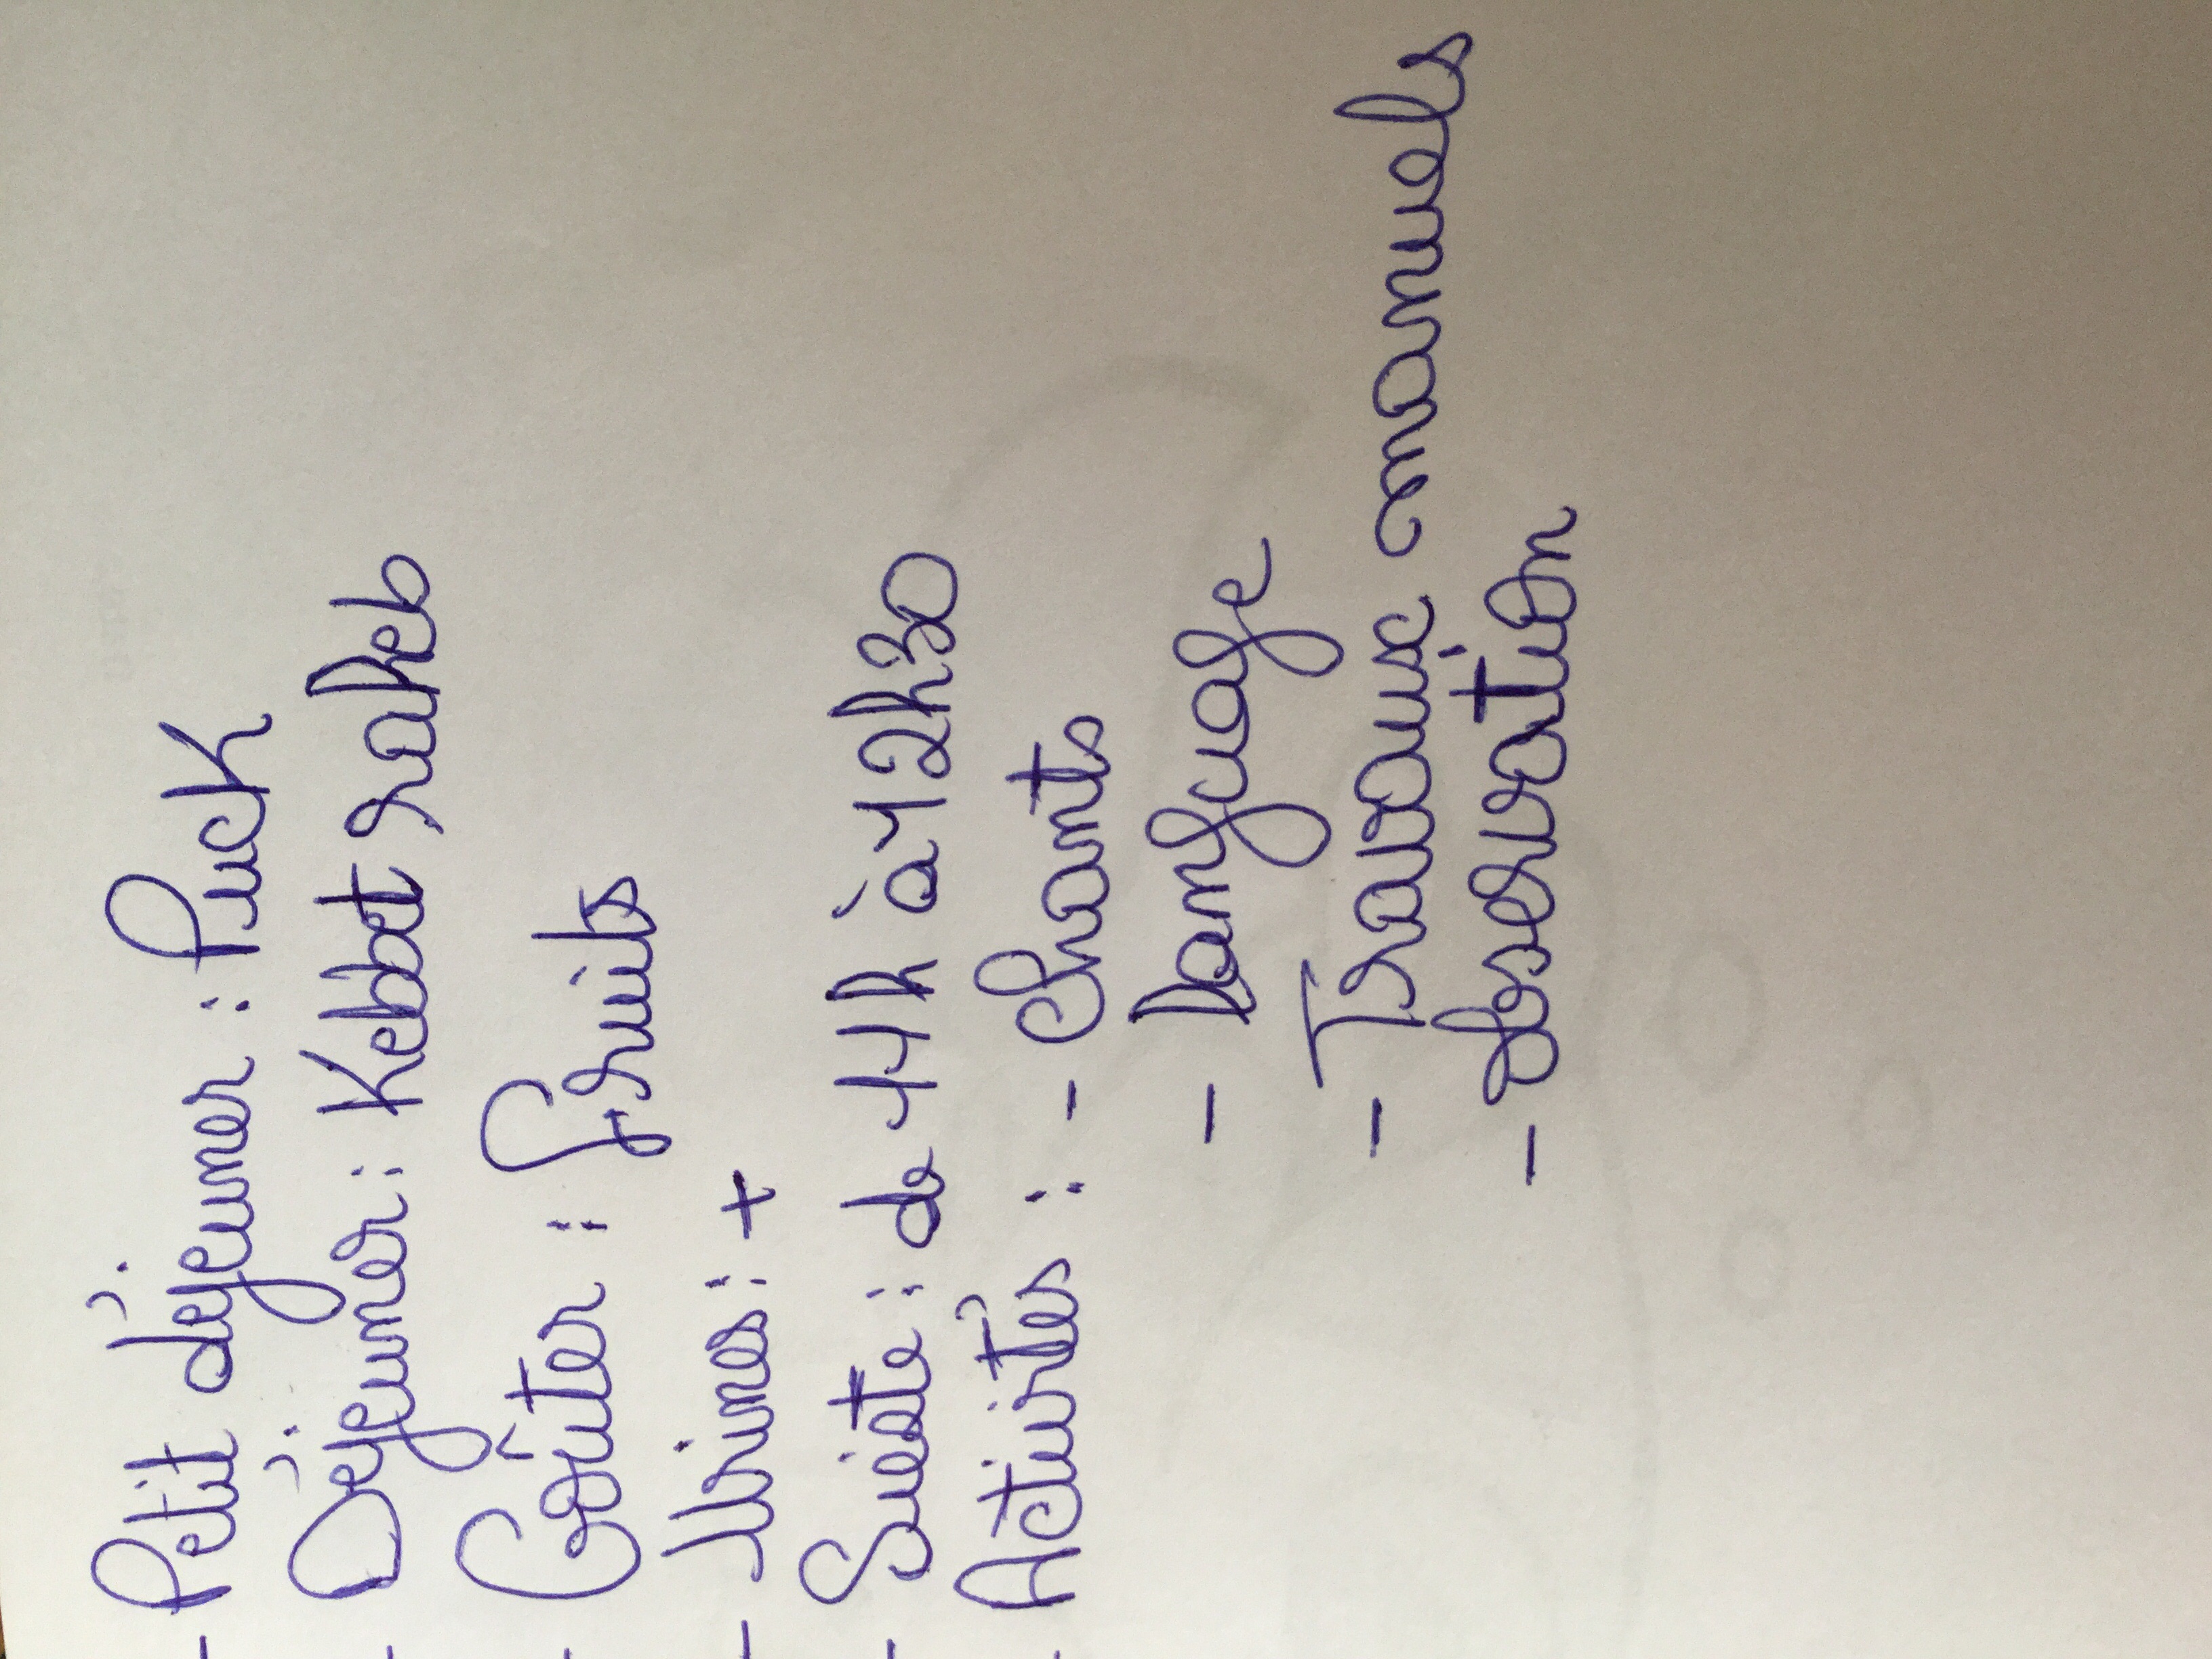 - Petit déjeuner : Puck
- Déjeuner : Kebbet raheb
- Goûter : fruits
- Urines : +
- Sieste : de 11h à 12h30
- Activités : - Chants
- Language
- Travaux manuels
- Observation